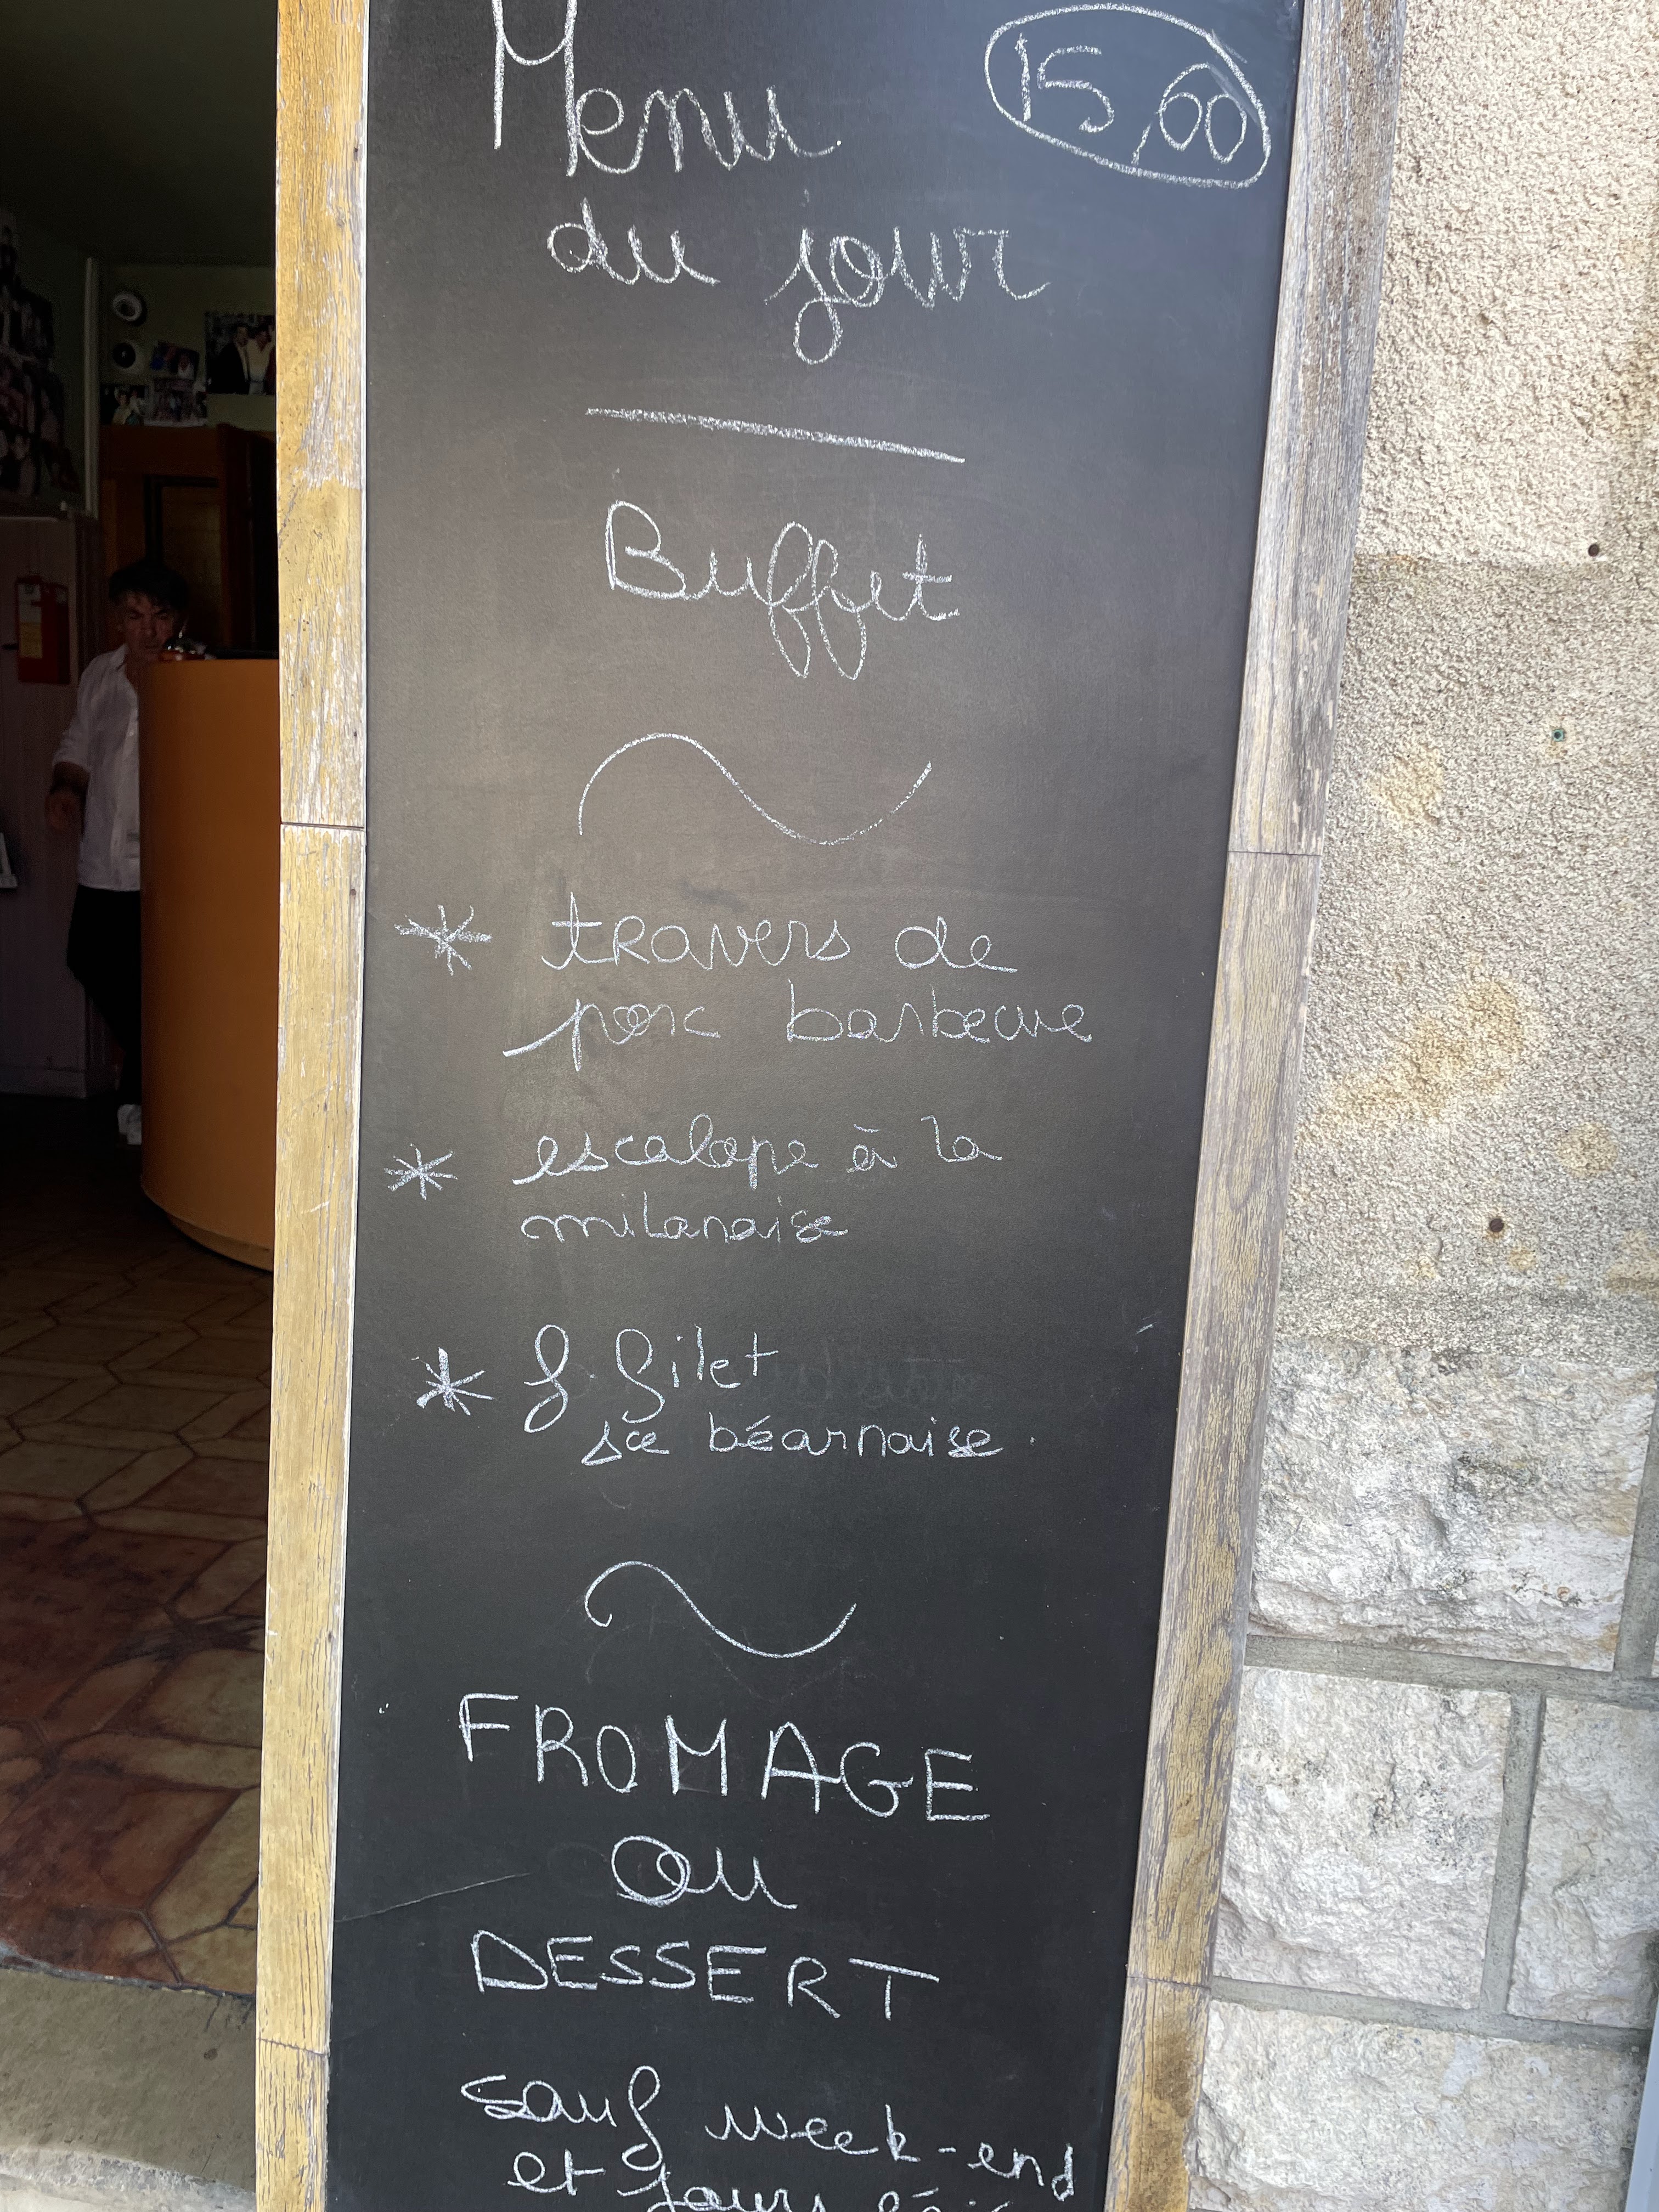 Menu
15,00
du jour
Buffet
* travers de
porc barbecue
* escalope à la
milanaise
* f filet
sce béarnaise.
FROMAGE
OU
DESSERT
sauf week-end
et jours